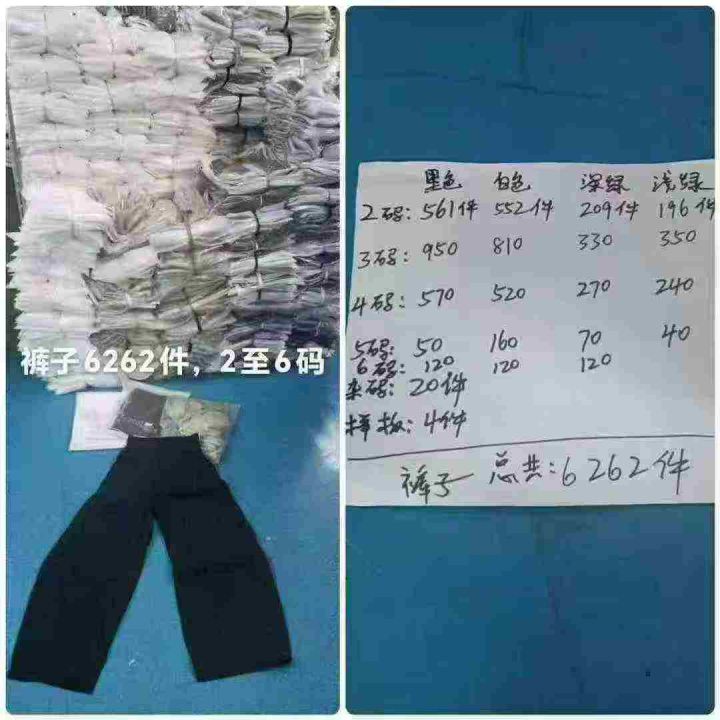 裤子6262件，2至6码
黑色 白色 深绿 浅绿
2码: 561件 552件 209件 196件
3码: 950 810 330 350
4码: 570 520 270 240
5码: 50 160 70 40
6码: 120 120 120
杂码: 20件
样板: 4件
裤子 总共: 6262件